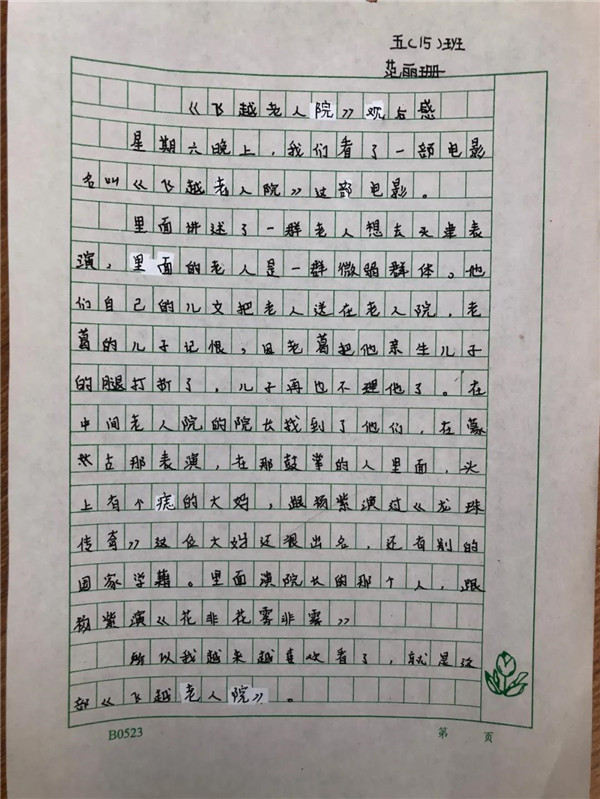 五(15)班
范丽珊
《飞越老人院》观与感
星期六晚上,我们看了一部电影
名叫《飞越老人院》这部电影。
里面讲述了一群老人想去天津表
演,里面的老人是一群微弱群体。他
们自己的儿女把老人送在老人院,老
葛的儿子记恨,因老葛把他亲生儿子
的腿打断了,儿子再也不理他了。在
中间老人院的院长找到了他们,在蒙
古那表演,在那鼓掌的人里面,头
上有个痣的大妈,跟杨紫演过《龙珠
传奇》这位大妈还很出名,还有别的
国家学籍。里面演院长的那个人,跟
杨紫演《花非花雾非雾》
所以我越来越喜欢看了,就是这
部《飞越老人院》。
B0523
第 页